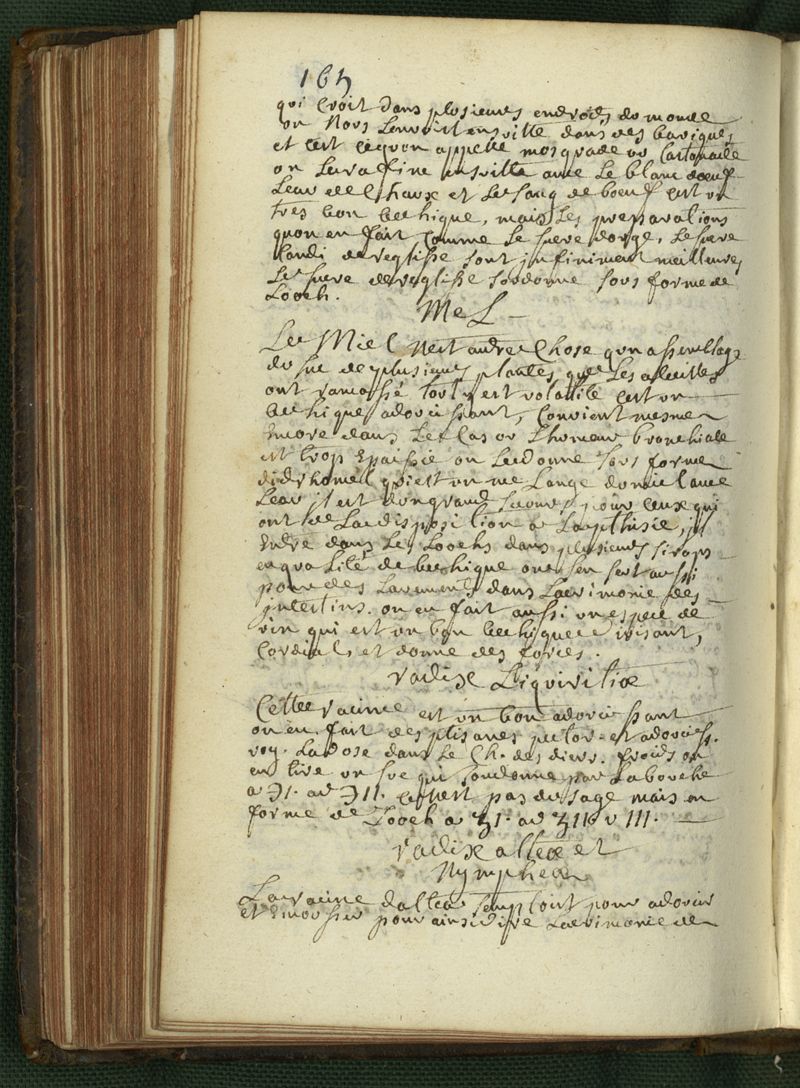 164
qui croit dans plusieurs endroits du monde
on nous l'envoit ensuitte dans des bariques
et c'est ce qu'on appelle mosquade ou cartonade
on la rafine ensuitte avec le blanc d'oeuf
l'eau de chaux et le sang de boeuf c'est un
tres bon bechique, mais les preparations
qu'on en fait comme le sucre d'orge, le sucre
candi de reglisse sont infiniment meilleures
le sucre de reglisse se donne sous forme de
Looch.
Mel
Le Miel n'est autre chose qu'un assemblage
du suc de plusieurs plantes que les abeilles
ont ramassé tout y est volatile c'est un
bechique adoucissant, convient mesme
encore dans le cas ou l'humeur bronchiale
est trop epaissie on le donne sous forme
d'idromel qui est un melange du miel avec
l'eau il est d'un grand secours pour ceux qui
ont de la disposition a la pthisie, il
entre dans les Loochs dans plusieurs sirops
en qualité de bechique on s'en sert aussi
pour des lavements dans l'acrimonie des
intestins. on en fait aussi un espece de
vin qui est un bon bechique incisant,
cordial, et donne des forces.
radix Liquiritiæ
Cette racine est un bon adoucissant
on en fait des ptisanes pector. et adouciss.
voy. la dose dans le Ch. des diur. froids on
en tire un suc qui se donne par la bouche
a ℈I. ad ℈II. ce n'est pas d'usage mais en
forme de Looch a ʒI. ad ʒII v III.
radix alteæ et
Nympheæ
La racine d'altea s'emploit pour adoucir
et emousser pour ainsi dire l'acrimonie de